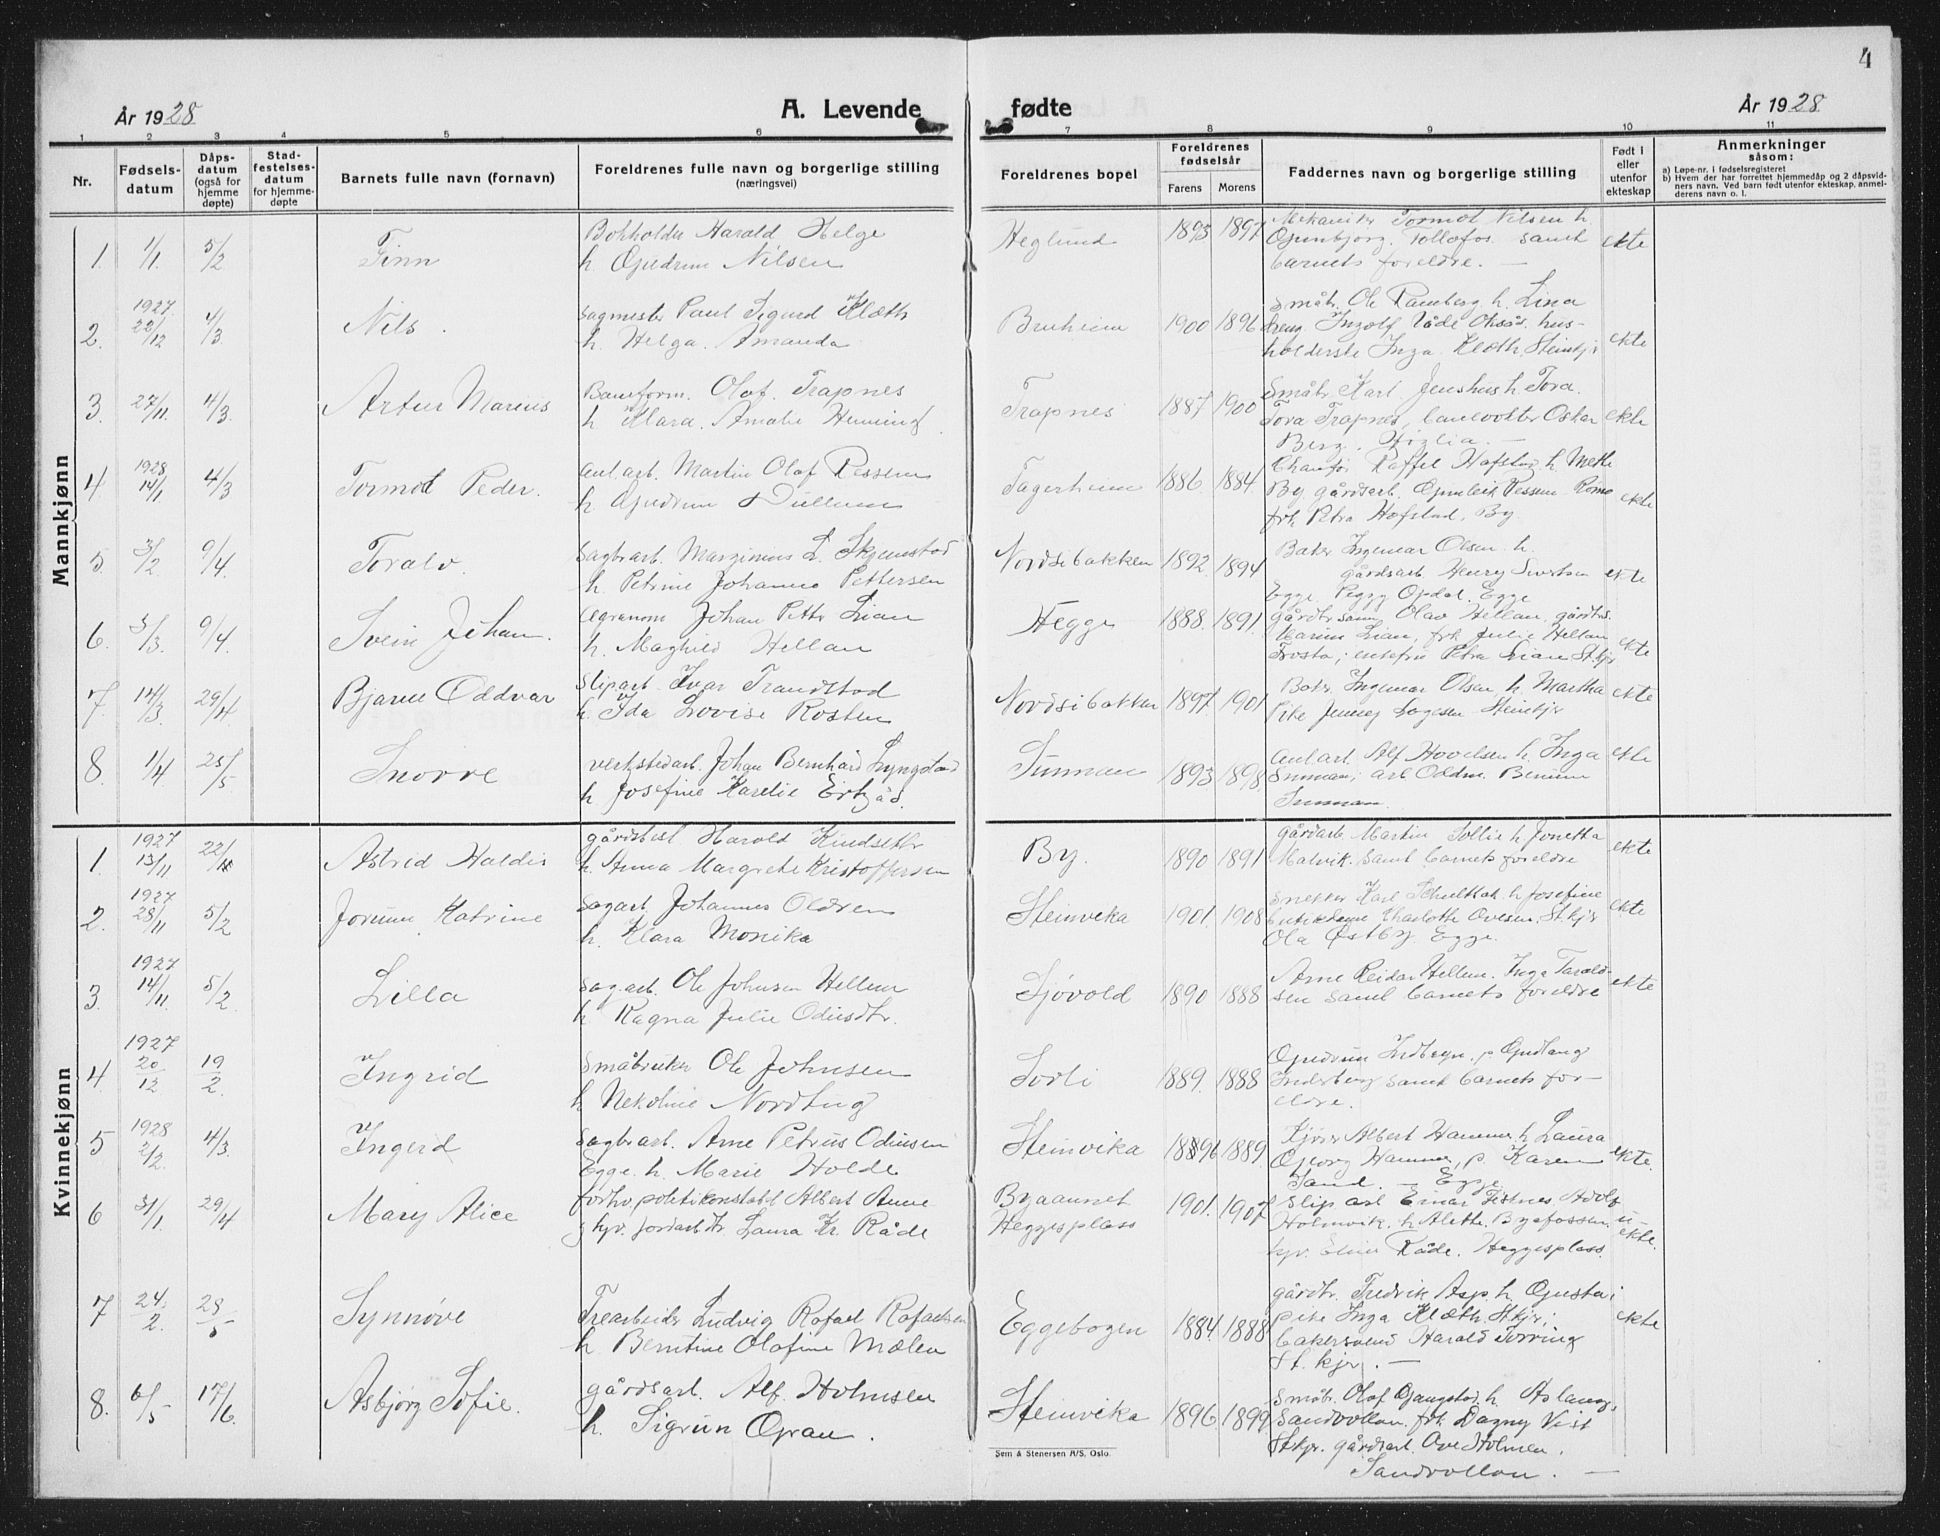 4
År 1928
A. Levende fødte
År 1928
1 2 3 4 5 6 7 8 9 10 11
Nr.
Fødsels-
datum
Dåps-
datum
(også for
hjemme
døpte)
Stad-
festelses-
datum
for hjemme-
døpte
Barnets fulle navn (fornavn)
Foreldrenes fulle navn og borgerlige stilling
(næringsvei)
Foreldrenes bopel
Foreldrenes
fødselsår
Farens Morens
Faddernes navn og borgerlige stilling
Født i
eller
utenfor
ekteskap
Anmerkninger
såsom:
a) Løpe-nr. i fødselsregisteret
b) Hvem der har forrettet hjemmedåp og 2 dåpsvid-
ners navn. Ved barn født utenfor ekteskap, anmel-
derens navn o. l.
Mannkjønn
1. 1/1 5/2 Finn
Bokholder Harald Helge
h. Gudrun Nilsen
Heglund 1893 1897
Mekaniker Tormod Nilsen h.
Tollefos samt
barnets foreldre. —
ekte
2. 1927 22/12 4/3 Nils.
Sagmester Paul Sigurd Klæth
h. Helga Amanda
Bruheim 1900 1896
Småbr. Ole Ramberg h. Lina
dreng Ingolf hus-
holderske Inga Klæth, Steinkjer
ekte
3. 27/11 4/3 Artur Marius
Baneform. Olaf Trapnes
h. Klara Amalie Henning
Trapnes 1887 1900
Småbr. Karl Jenshus h. Tora.
Tora Trapnes, banevokter Oskar
Berg, —
ekte
4 1928 14/1 4/3 Tormod Peder.
anl.arb. Martin Olaf Ressem
h. Gudrun Dullum
Fagerheim 1886 1884
Chauffør Raffel Hofstad h. Mette
By gårdsarb. Ressem
frk. Petra Hofstad, By
ekte
5 3/2 9/4. Toralv.
Sagbr.arb. Marginus L. Skjemstad
h. Petrine Johanna Pettersen
Nordsibakken 1892. 1894
Baker Ingemar Olsen h.
gårdsarb. Henry Sivertsen
Egge. Peggy Opdal. Egge
ekte
6. 3/3. 9/4. Svein Johan.
agronom Johan Petter Lian
h. Maghild Hellan
Hegge 1888. 1891.
gårdbr.sønn Olav Hellan, gårdbr.
Lian, frk. Julie Hellan
Frosta; enkefru Petra Lian St.kjer
ekte
7. 14/3 29/4 Bjarne Oddvar
Sliparb. Ivar Trandstad
h. Ida Lovise Rosten
Nordsibakken 1897. 1901
Baker Ingemar Olsen h. Martha
Pike Jenney Steinkjer
ekte
8. 1/4 25/5 Snorre
verkstedarb. Johan Bernhard Lyngstad
h. Josefine Karelie
Sunnan 1893 1898
anl.arb. Alf Hovelsen h. Inga
Sunnan; arb. Oddm.
Sunnan.
ekte
Kvinnekjønn
1. 1927 13/11 22/1 Astrid Haldis
gårdsbest. Harald Kindseth
h. Anna Margrete Kristoffersen
By. 1890 1891
gårdarb. Martin Tollie h. Jonetta
Malvik. samt barnets foreldre
ekte
2. 1927 28/11 5/2 Jorunn Katrine
Sagarb. Johannes Oldren
h. Klara Monika
Steinvika 1901. 1908
Snekker Karl h. Josefine
Charlotte Ovesen, St.kjer
Ola Østby. Egge.
ekte
3. 1927 14/11 5/2 Lilla
Sag.arb. Ole Johnsen Hellem
h. Ragna Julie Odinsdtr.
Sjøvold 1890 1888
Arne Reidar Hellem. Inga Tarald-
sen samt barnets foreldre
ekte
4. 1927 20/12 19/2 Ingrid
Småbruker Ole Johnsen
h. Nekoline Nordtug
Sorli 1889. 1888
Gudrun p. Gudlaug
Inderberg samt barnets for-
eldre.
5 1928 2/2. 4/3. Ingerid
Sagbr.arb. Arne Petrus Odinsen
Egge. h. Marie Holde
Steinvika 1896 1889.
Kjører Albert Hammer h. Laura
Georg Hammer, p. Karen
Sand. — Egge
ekte.
6 31/1. 29/4 Mary Alice
forhv. politikonstabel Albert Aune
g kpr. Jordarb.dtr Laura Kr. Råde
Byaaunet
Heggesplass
1901. 1907
Sliparb. Einar Fisknes Adolf
Holmvik. h. Alette. Byafossen.
kpr. Råde. Heggesplass.
u-
ekte.
7 24/2. 28/5 Synnøve
Trearbeider Ludvig Rafael Rafaelsen
h. Berntine Olafine Mælen
Eggebogen 1884. 1888
gårdbr. Fredrik Asp h. Gusta;
pike Inga Klæth. St.kjer;
bakersvend Harald Tørring
St.kjer. —
ekte
8. 6/5 17/6. Asbjørg Sofie.
gårdsarb. Alf Holmsen
h. Sigrun Gran.
Steinvika 1896. 1899.
Småbr. Olaf Gangstad h. Aslaug,
Sandvollan. frk. Dagny Vist
St.kjer. gårdsarb. Ove Holmen.
Sandvollan. —
Sem & Stenersen A/S, Oslo.